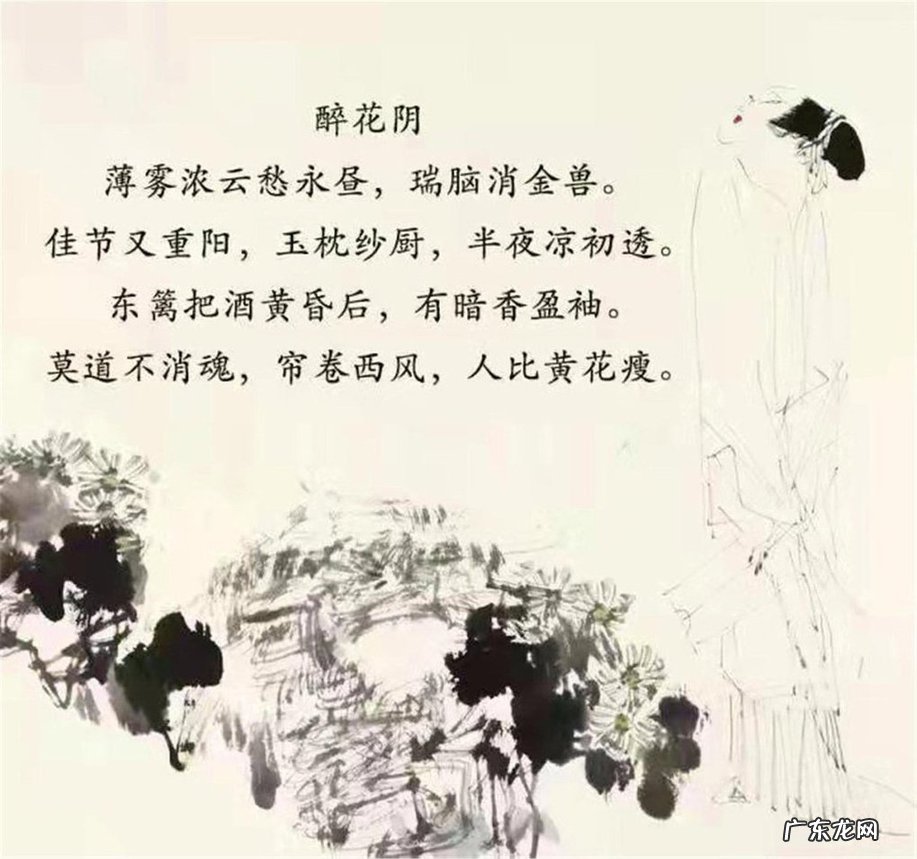 醉花阴
薄雾浓云愁永昼，瑞脑消金兽。
佳节又重阳，玉枕纱厨，半夜凉初透。
东篱把酒黄昏后，有暗香盈袖。
莫道不消魂，帘卷西风，人比黄花瘦。
广东龙网